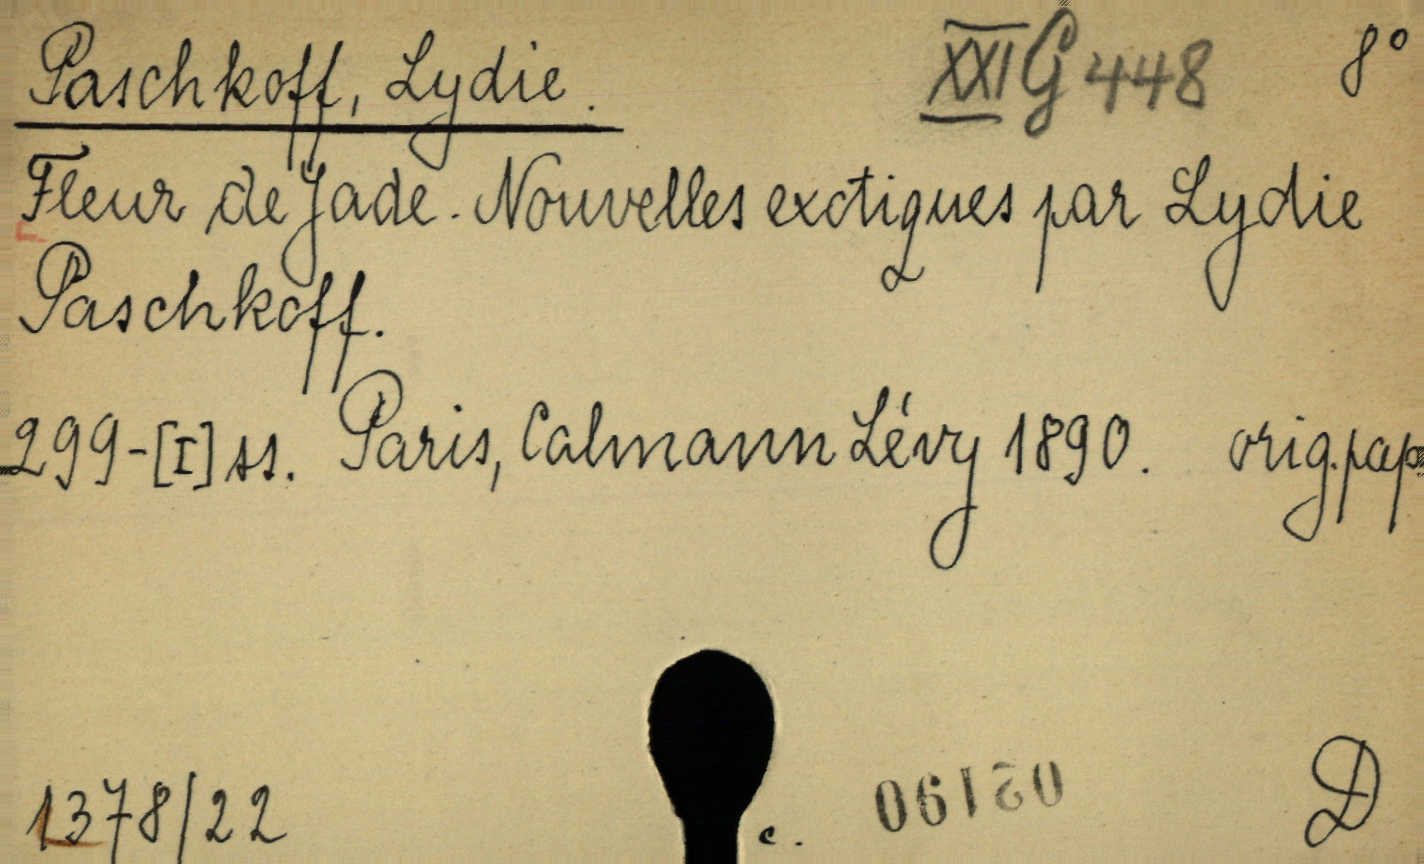 Paschkoff, Lydie. XXI G 448 8°
Fleur de Jade. Nouvelles exotiques par Lydie
Paschkoff.
299-[I] ss. Paris, Calmann Lévy 1890. orig. pap.
1378/22 c. 02190 D